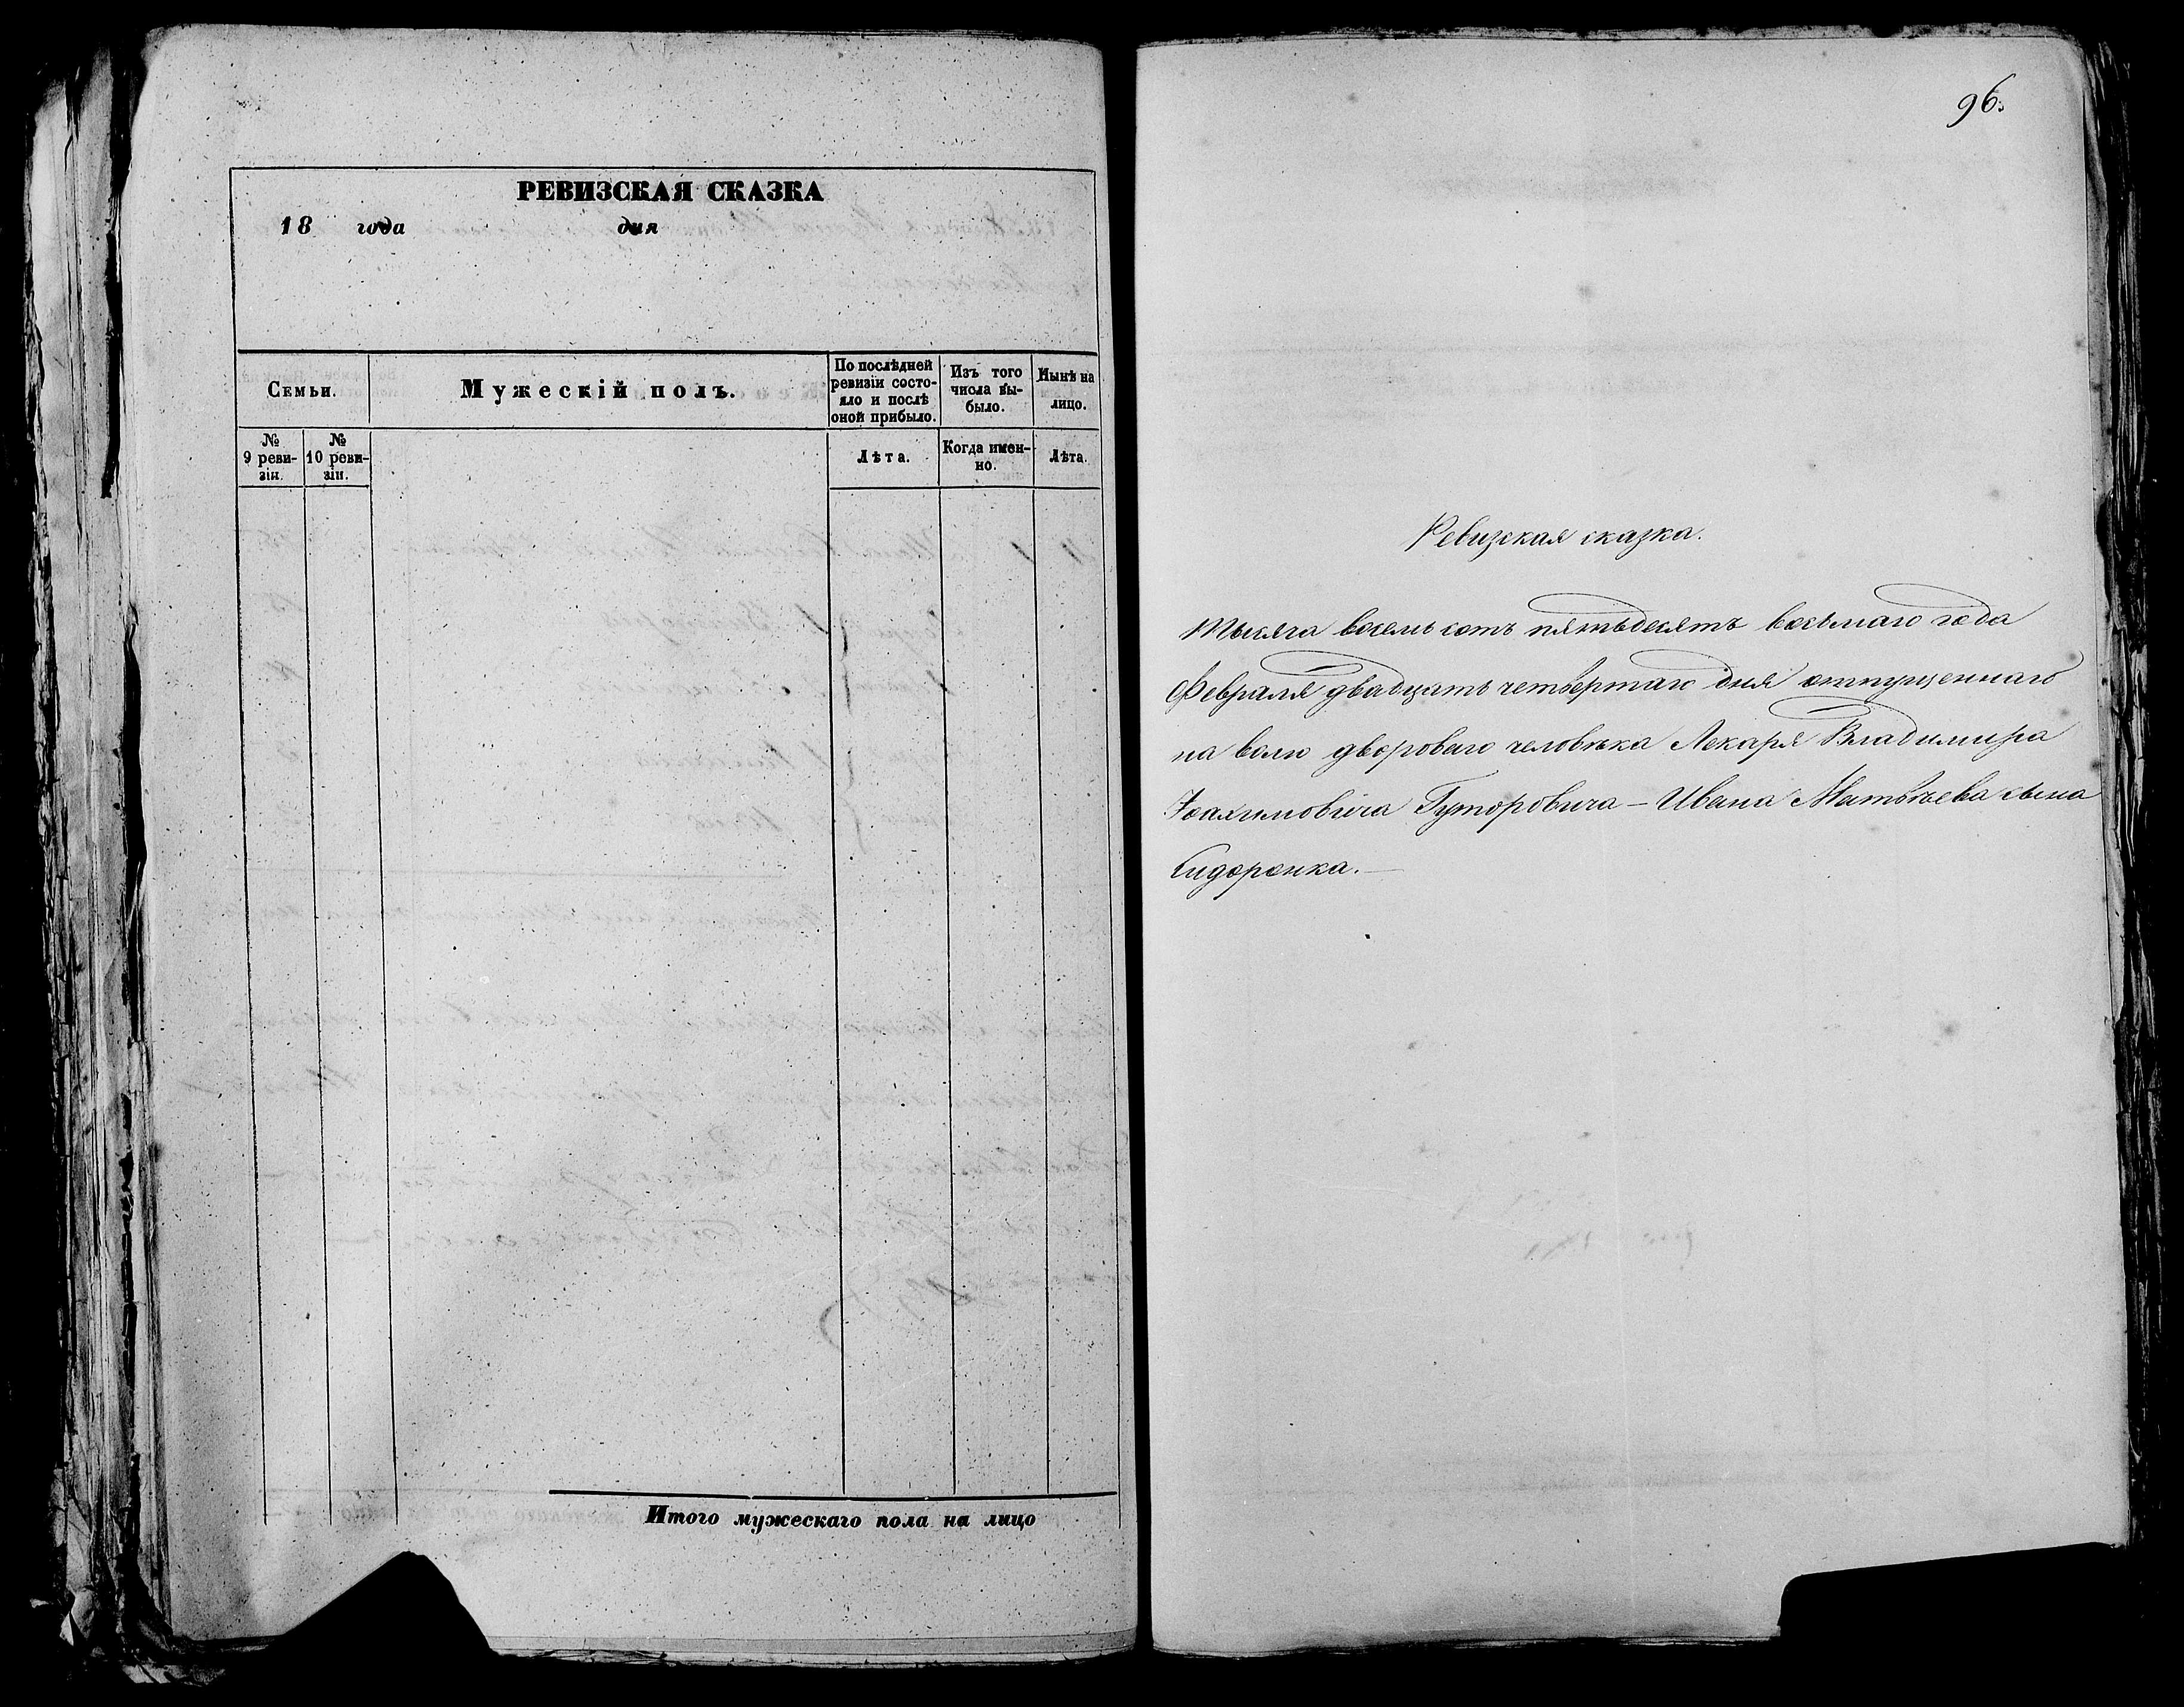 РЕВИЗСКАЯ СКАЗКА
18 года дня
Семьи.
Мужескій полъ.
По послѣдней
ревизіи состо-
яло и послѣ
оной прибыло.
Изъ того
числа вы-
было.
Нынѣ на
лицо.
№
9 реви-
зіи.
№
10 реви-
зіи.
Лѣта.
Когда имен-
но.
Лѣта.
Итого мужескаго пола на лицо
96.
Ревизская сказка.
Тысяча восемь сотъ пятьдесятъ восьмаго года
Февраля двадцать четвертаго дня отпущеннаго
на волю двороваго человѣка Лекаря Владимира
Іоахимовича Гуторовича – Ивана Матвѣева сына
Сидоренка. –